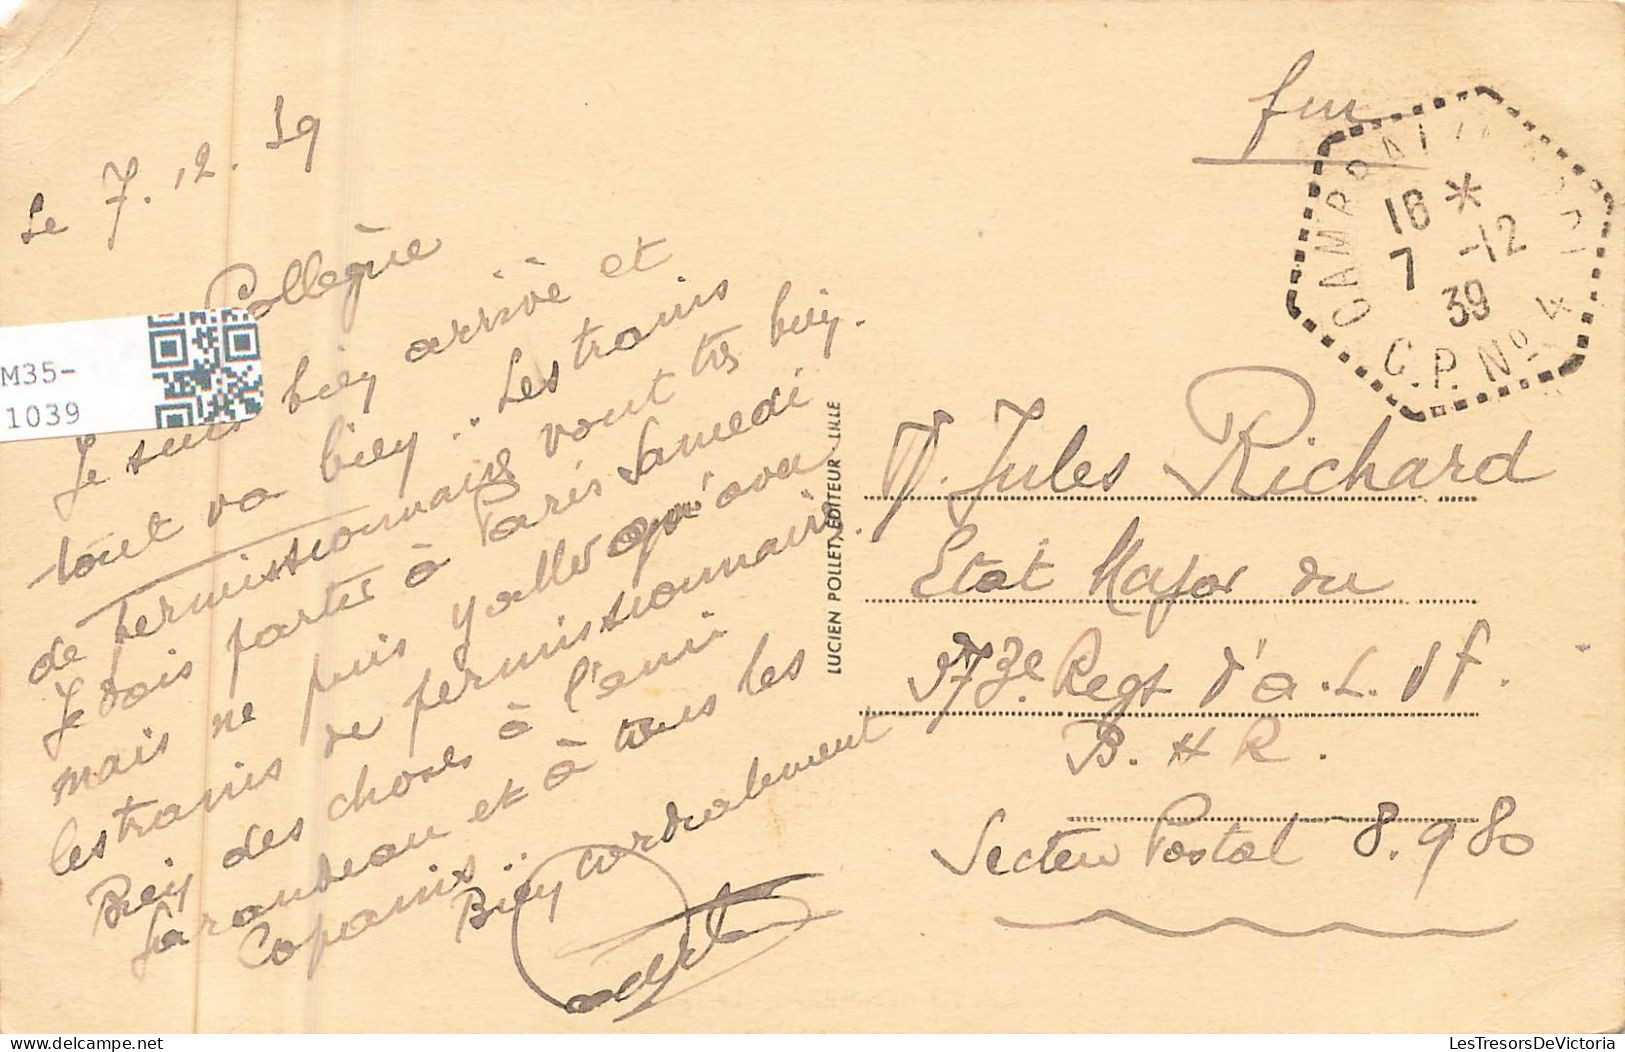 Le 7.12.39
Collègue
Je suis bien arrivé et
tout va bien .. Les trains
de permissionnaires vont très bien.
Je dois partir à Paris Samedi
mais ne puis y aller qu'avec
les trains de permissionnaires.
Bien des choses à l'ami
et à tous les
Copains..
Bien cordialement
M35-
1039
LUCIEN POLLET, EDITEUR - LILLE
fm
CAMBRAI
18 *
7 -12
39
C.P. No 4
M. Jules Richard
Etat Major du
373e Regt d'a.L.V F.
B.H R.
Secteur Postal 8.980
LesTresorsDeVictoria